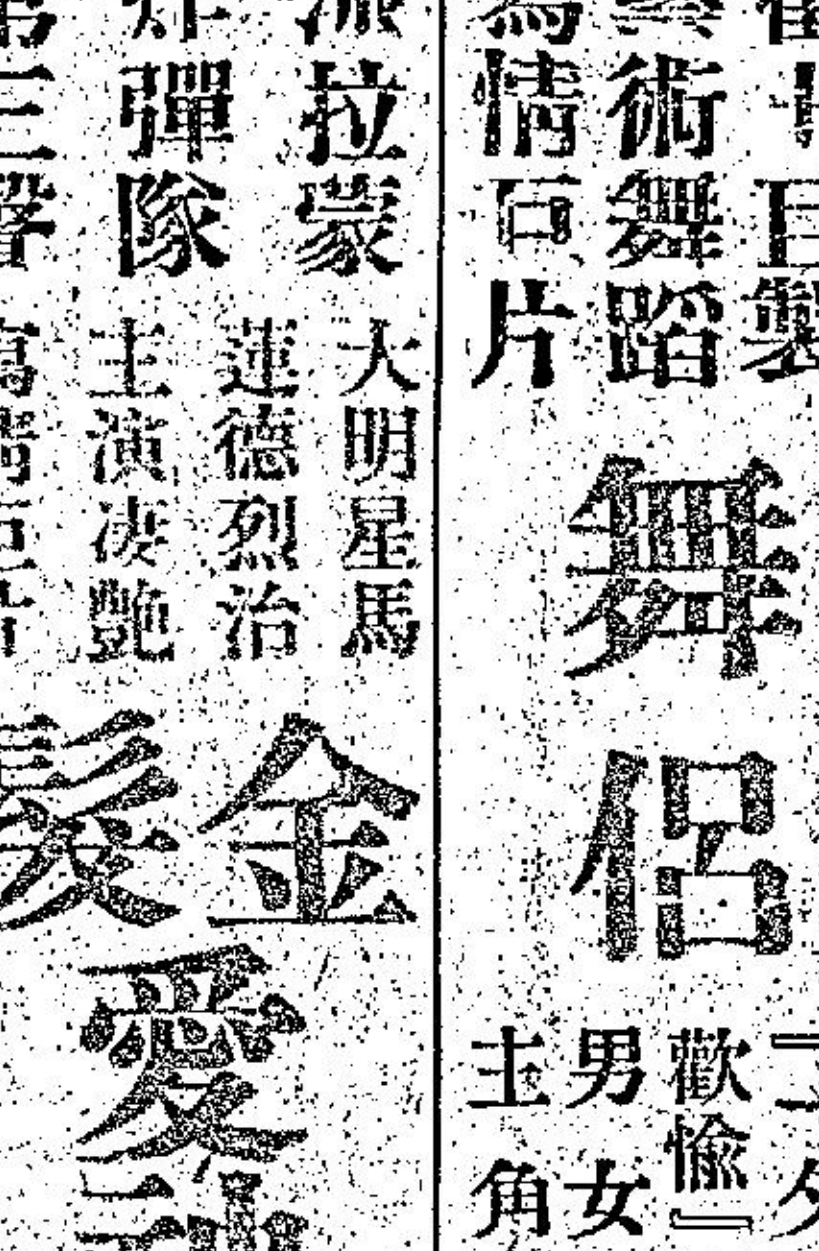 巨製
術舞蹈
情巨片
舞侶
夕
歡愉』
男女
主角
派拉蒙
炸彈隊
三聲
大明星馬
蓮德烈治
主演凄艷
金髮
愛